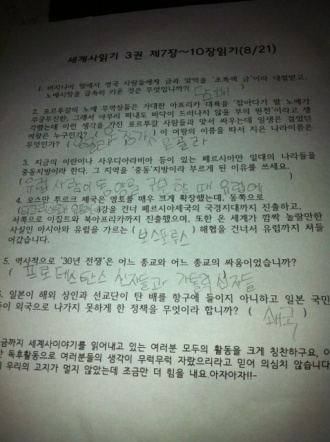 세계사읽기 3권 제7장~10장읽기(8/21)
1. 버지니아 땅에서 영국 사람들에게 금과 양덕을 '초록색 금'이라 대접받고,
노예시장을 급속히 키운 것은 무엇입니까? ( 담배
2. 포르투갈의 노예 무역상들은 거대한 아프리카 대륙을 '잡아다가 팔 노예가
무궁무진한, 그래서 아무리 퍼내도 바닥이 드러나지 않을 부의 원천'이라고 생
각했는데 이런 생각을 가진 포르투갈 사람들과 맞서 싸우는데 일생은 걸었던
여왕은 누구인가? ( 이 여왕의 이름을 따서 지은 나라이름은
무엇인가? (
3. 지금의 이란이나 사우디아라비아 등이 있는 페르시아만 일대의 나라들을
중동지방이라 한다. 그 지역을 '중동'지방이라 부르게 된 이유를 쓰세요.
유럽 사람이 동양을 구분 할 때 유럽에
4. 오스만 투르크 제국은 영토를 매우 크게 확장했는데, 동쪽으로
강을 건너 페르시아제국의 국경지대까지 진출하고,
서쪽으로 이집트와 북아프리카까지 진출했으며, 또한 온 세계가 깜짝 놀랄만한
사실인 아시아와 유럽을 가르는 (보스포루스) 해협을 건너서 유럽까지 쳐들
어갔습니다.
5. 역사적으로 '30년 전쟁'은 어느 종교와 어느 종교의 싸움이었습니까?
(프로테스탄스 신자들과 가톨릭 신자들
6. 일본이 해외 상인과 선교단이 탄 배를 항구에 들이지 아니하고 일본 국민
들이 외국으로 나가지 못하게 한 정책을 무엇이라 합니까? ( 쇄국
금까지 세계사이야기를 읽어내고 있는 여러분 모두의 활동을 크게 칭찬하구요, 이
한 독후활동으로 여러분들의 생각이 무럭무럭 자랐으리라고 믿어 의심치 않습니다
제 우리의 고지가 멀지 않았는데 조금만 더 힘을 내요.아자아자!!-